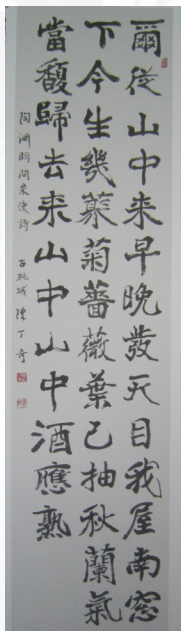 爾從山中来早晚發天目我屋南窓
下今生幾藂菊薔薇葉已抽秋蘭氣
當馥歸去来山中山中酒應熟
陶淵明問来使詩 古桃城 陳丁奇